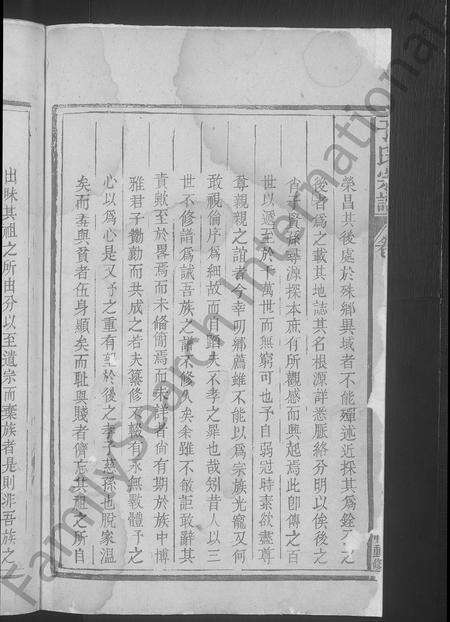 榮昌其後處於殊鄉異域者不能殫述近採其為銓六之
後者為之載其地誌其名根源詳悉脈絡分明以俟後之
省子賢孫尋源探本庶有所觀感而興起焉此卽傳之百
世以遞至於千萬世而無窮可也予自弱冠時素欲盡尊
尊親親之誼者今幸叨鄉薦雖不能以為宗族光寵又何
敢視倫序為細故而自蹈夫不孝之罪也哉矧昔人以三
世不修譜為誡吾族之譜不修久矣余雖不敏詎敢辭其
責歟至於畧焉而未脩簡焉而未詳者尚有期於族中博
雅君子勷勤而共成之若夫纂修不輟有永無斁體予之
心以為心是又予之重有望於後之孝子慈孫也脫家溫
矣而羞與貧者伍身顯矣而耻與賤者儕忘其祖之所自
出昧其祖之所由分以至遺宗而棄族者是則非吾族之
氏宗譜
卷
重修
FamilySearch International